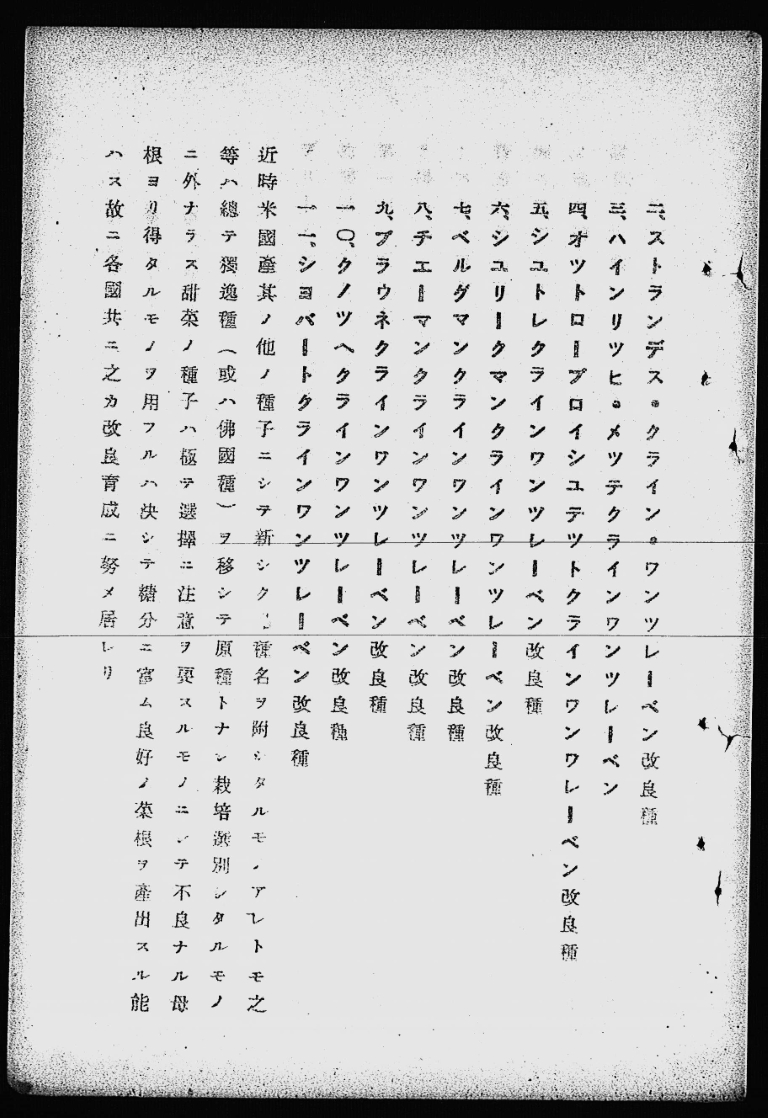 二、ストランデス。クライン。ワンツレーベン改良種
三、ハインリツヒ。メツテクラインワンツレーベン
四、オツトロープロイシユテツトクラインワンワレーベン改良種
五、シユトレクラインワンツレーベン改良種
六、シユリークマンクラインワンツレーベン改良種
七、ベルグマンクラインワンツレーベン改良種
八、チエーマンクラインワンツレーベン改良種
九、ブラウネクラインワンツレーベン改良種
一〇、クノツヘクラインワンツレーベン改良種
一一、シヨバートクラインワンツレーベン改良種
近時米國產其ノ他ノ種子ニシテ新シク種名ヲ附シタルモノアレトモ之
等ハ總テ獨逸種（或ハ佛國種）ヲ移シテ原種トナシ栽培選別シタルモノ
ニ外ナラス甜菜ノ種子ハ極テ選擇ニ注意ヲ要スルモノニシテ不良ナル母
根ヨリ得タルモノヲ用フルハ決シテ糖分ニ富ム良好ノ菜根ヲ產出スル能
ハス故ニ各國共ニ之カ改良育成ニ努メ居レリ